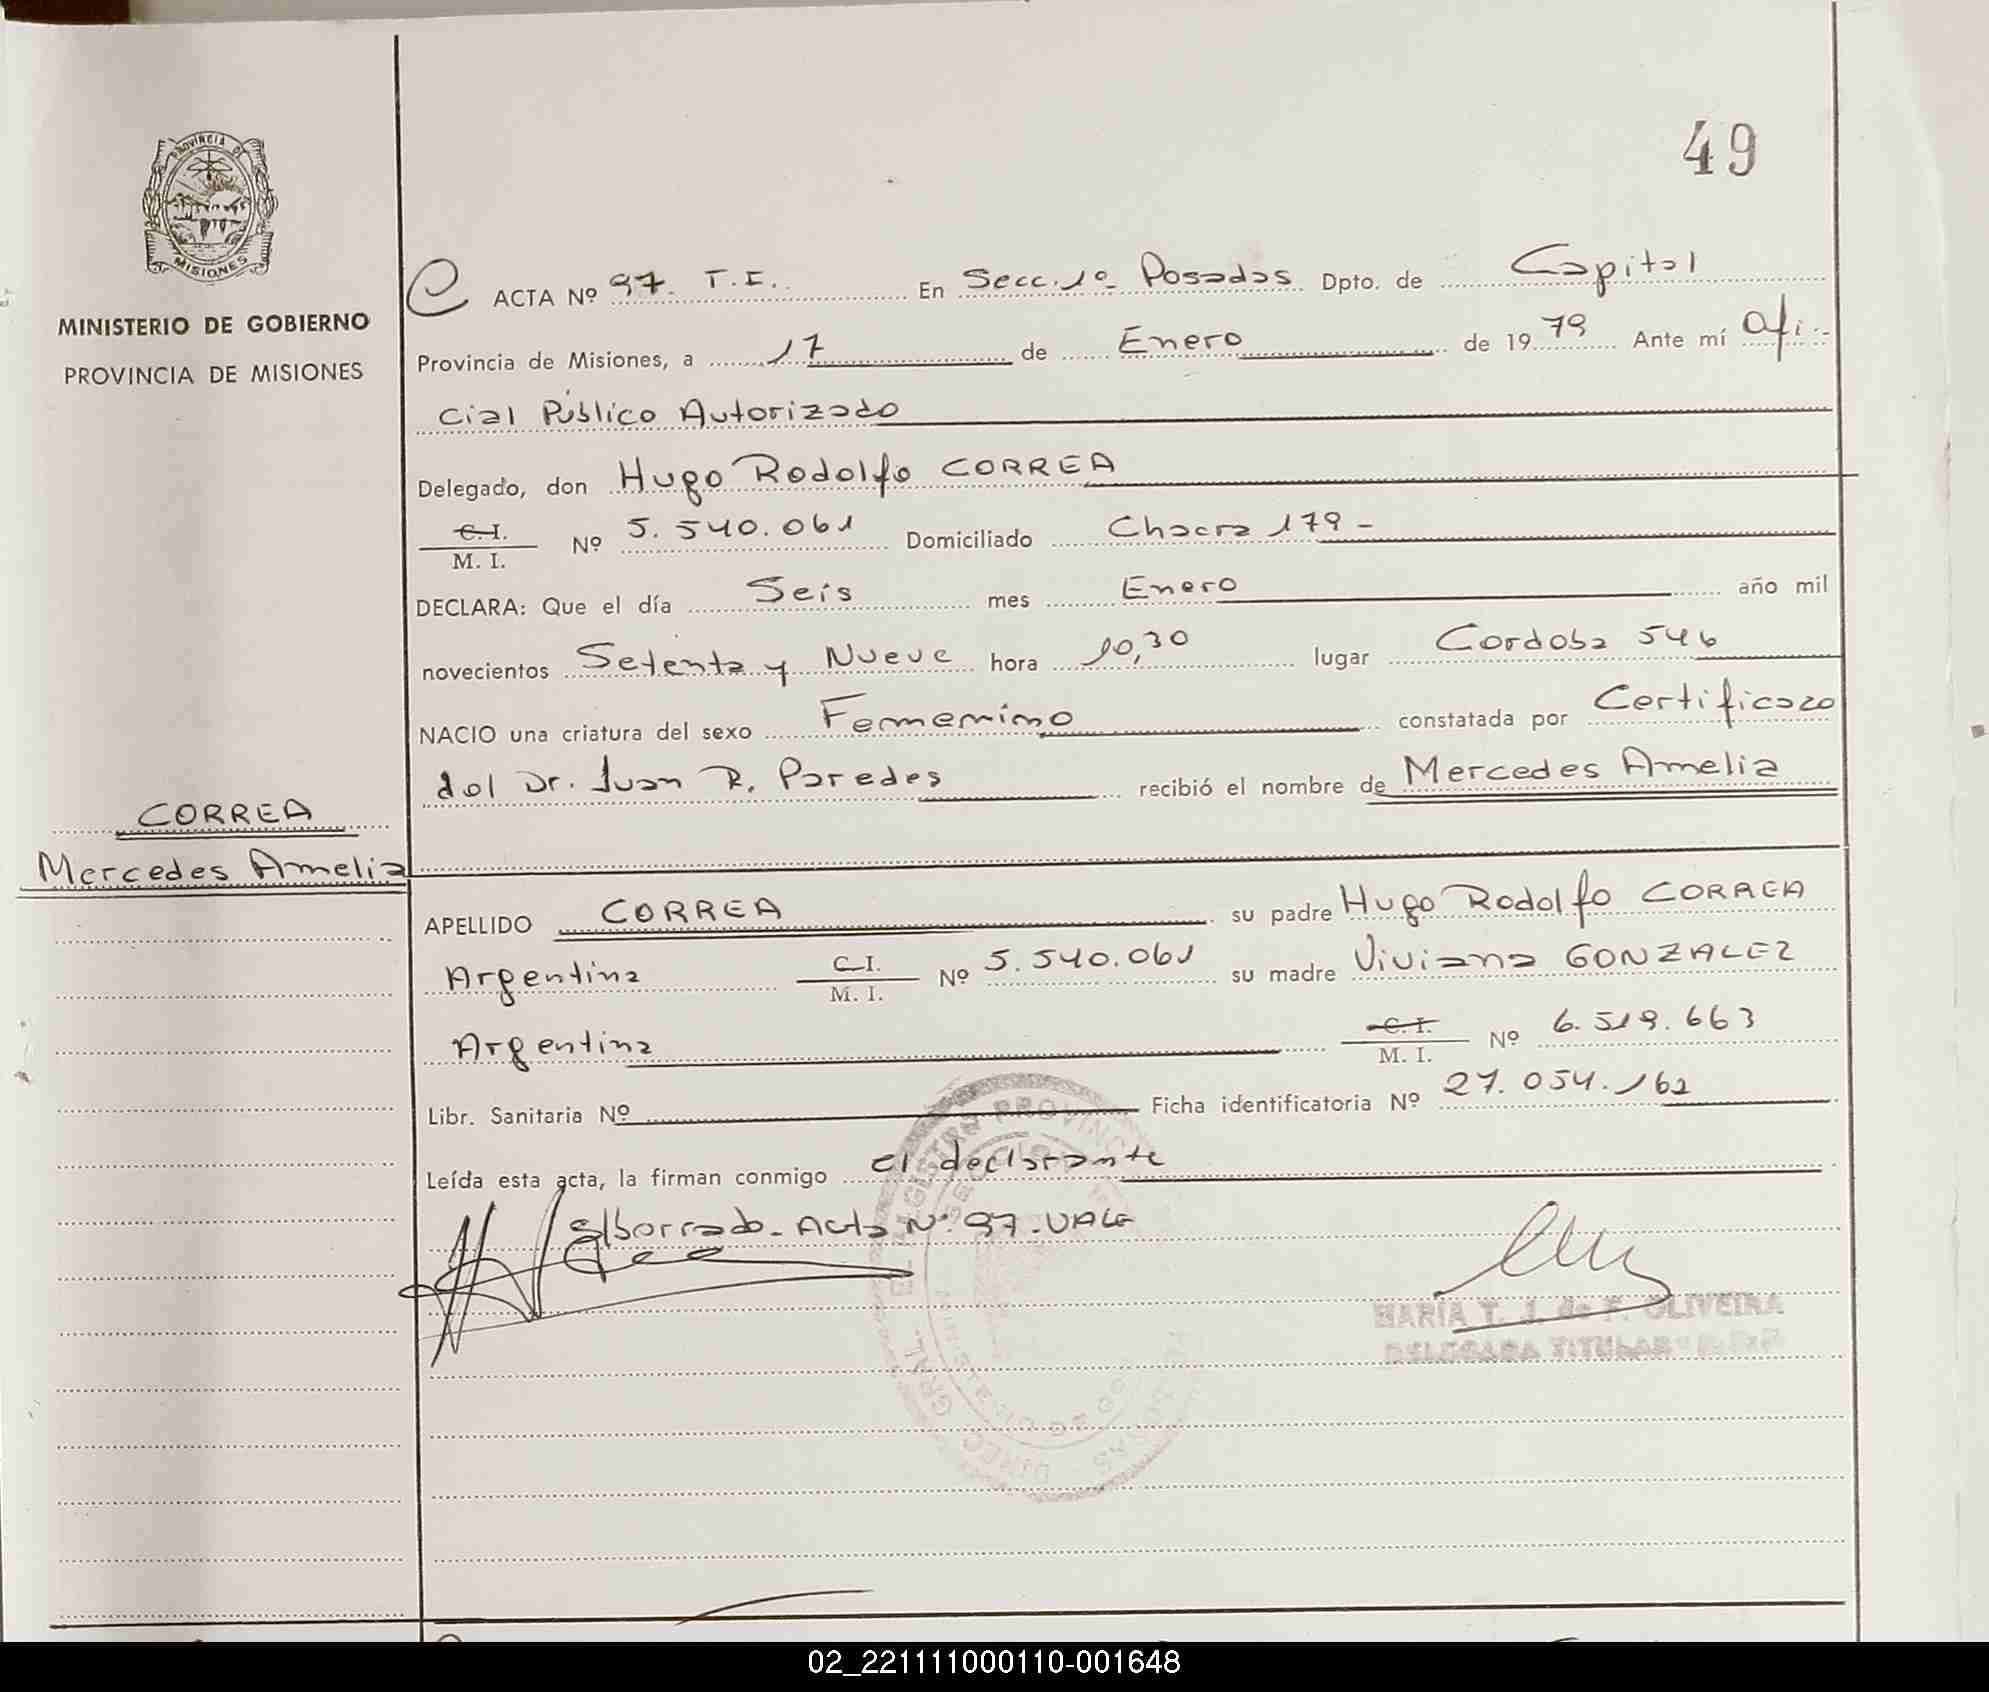 49
PROVINCIA DE
MISIONES
MINISTERIO DE GOBIERNO
PROVINCIA DE MISIONES
ACTA Nº 97. T.I. En Secc. 1º Posadas Dpto. de Capital
Provincia de Misiones, a 17 de Enero de 1979 Ante mí Ofi
cial Público Autorizado
Delegado, don Hugo Rodolfo CORREA
C.I.
M. I. Nº 5.540.061 Domiciliado Chacra 179 -
DECLARA: Que el día Seis mes Enero año mil
novecientos Setenta y Nueve hora 10,30 lugar Cordoba 546
NACIO una criatura del sexo Femenino constatada por Certificado
del Dr. Juan R. Paredes recibió el nombre de Mercedes Amelia
CORREA
Mercedes Amelia
APELLIDO CORREA su padre Hugo Rodolfo CORREA
Argentina C.I.
M. I. Nº 5.540.061 su madre Viviana GONZALEZ
Argentina C.I.
M. I. Nº 6.519.663
Libr. Sanitaria Nº Ficha identificatoria Nº 27.054.162
Leída esta acta, la firman conmigo el declarante
Borrado - Acta Nº 97 - VALE
MARIA T. J. de F. OLIVEIRA
DELEGADA TITULAR
02_221111000110-001648